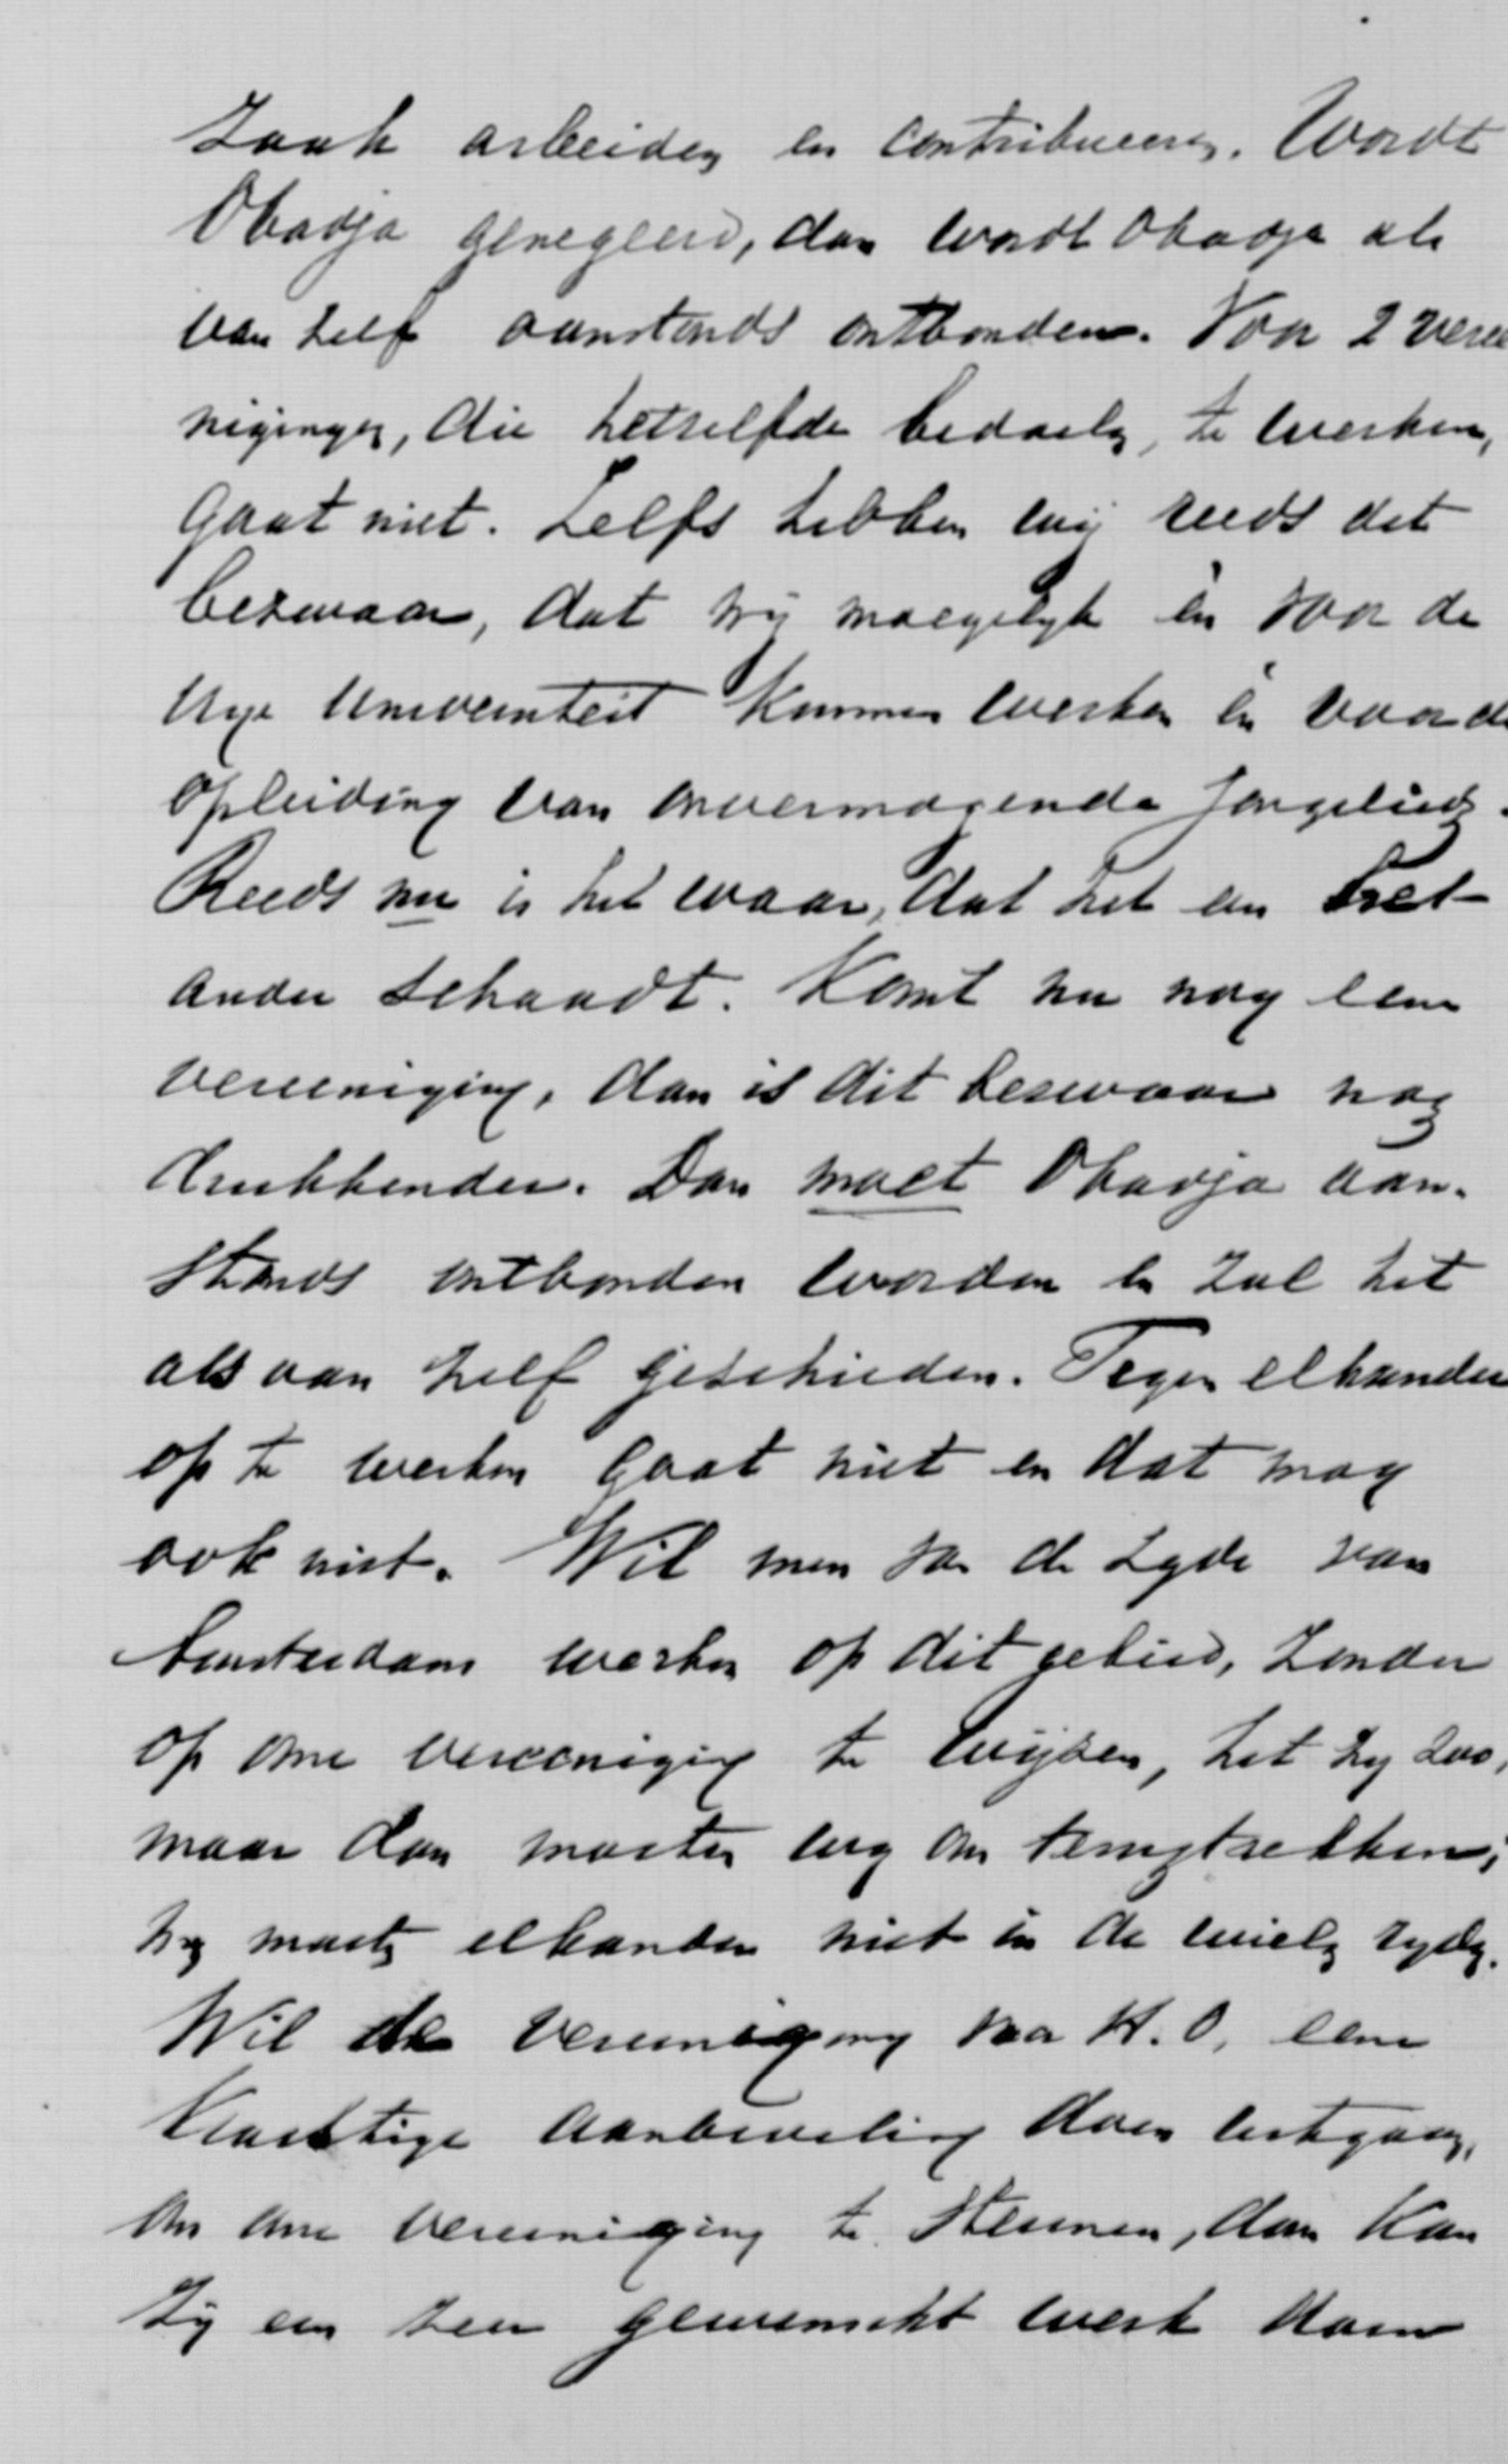 zaak arbeiden en contribueeren. Wordt
Obadja genegeerd, dan wordt Obadja als
van zelf aanstonds ontbonden. Voor 2 veree
nigingen, die hetzelfde bedoelen, te werken,
gaat niet. Zelfs hebben wij reeds dit
bezwaar, dat wij moeyelyk èn voor de
Vrye Universiteit kunnen werken èn voor de
opleiding van onvermogende jongelieden.
Reeds nu is het waar, dat het een het
ander schaadt. Komt nu nog eene
vereeniging, dan is dit bezwaar nog
drukkender. Dan moet Obadja aan-
stonds ontbonden worden en zal het
als van zelf geschieden. Tegen elkander
op te werken gaat niet en dat mag
ook niet. Wil men van de zyde van
Amsterdam werken op dit gebied, zonder
op onze vereeniging te wyzen, het zy zoo,
maar dan moeten wy ons terugtrekken;
wy moeten elkander niet in de wielen ryden.
Wil de vereeniging voor H. O. eene
krachtige aanbeveling doen uitgaan,
om onze vereeniging te steunen, dan kan
zy een zeer gewenscht werk doen